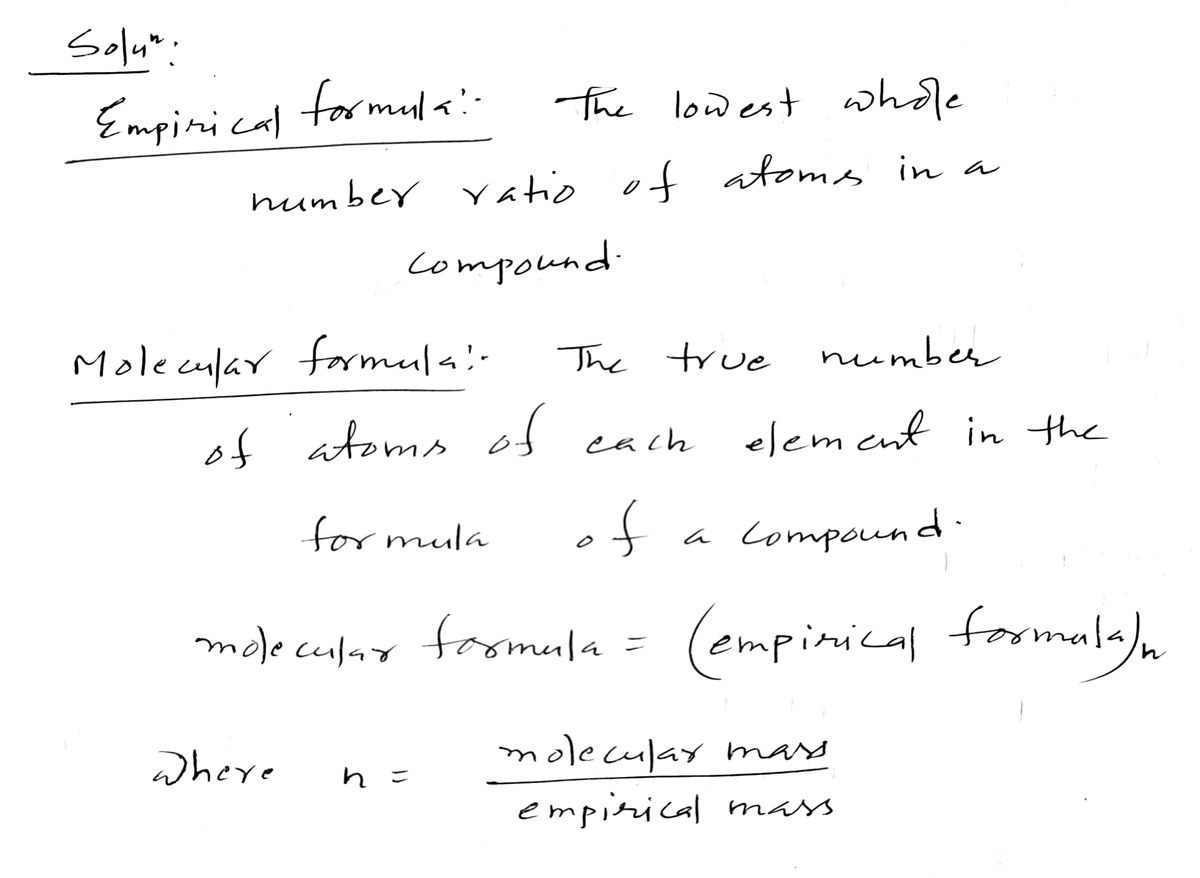 Soluⁿ:
Empirical formula:- The lowest whole
number ratio of atoms in a
compound.
Molecular formula:- The true number
of atoms of each element in the
formula of a compound.
molecular formula = (empirical formula)ₙ
where n = molecular mass
empirical mass